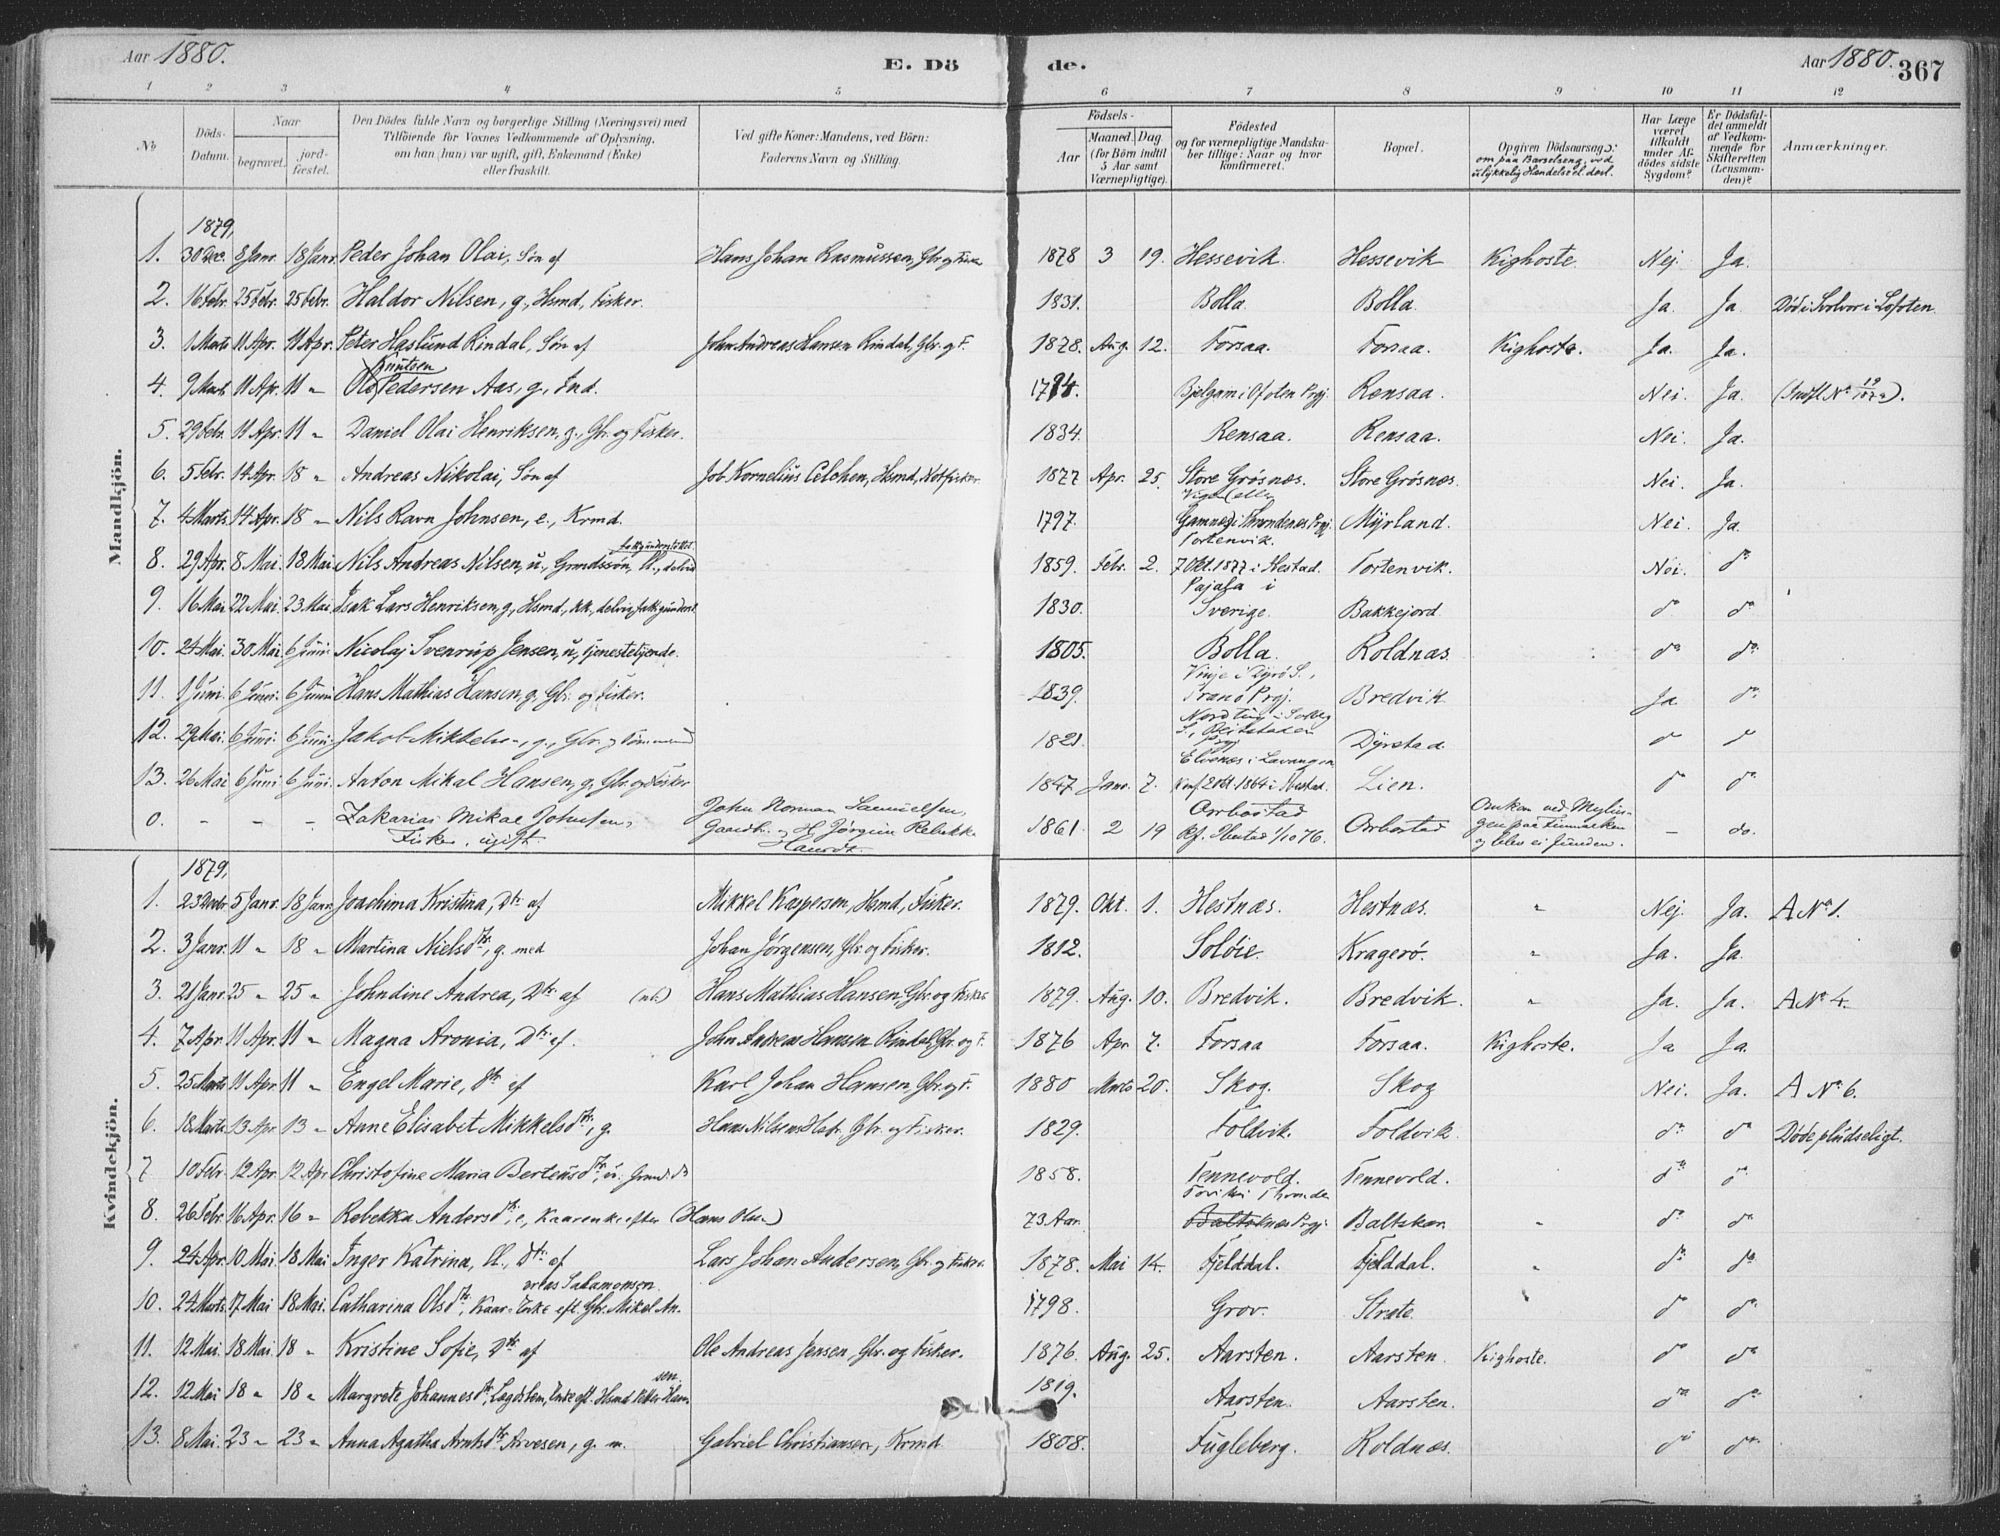 Aar 1880.
E. Dö de.
Aar 1880. 367
1 2 3 4 5 6 7 8 9 10 11 12
No
Döds-Datum.
Naar begravet. jordfæstet.
Den Dödes fulde Navn og borgerlige Stilling (Næringsvei) med Tilföiende for Voxnes Vedkommende af Oplysning, om han (hun) var ugift, gift, Enkemand (Enke) eller fraskilt.
Ved gifte Koner: Mandens, ved Börn: Faderens Navn og Stilling.
Födsels- Aar Maaned. Dag (for Börn indtil 5 Aar samt Værnepligtige).
Födested og for værnepligtige Mandskaber tillige: Naar og hvor konfirmeret.
Bopæl.
Opgiven Dödsaarsag
Har Læge været tilkaldt under Afdödes sidste Sygdom?
Er Dödsfaldet anmeldt af Vedkommende for Skifteretten (Lensmanden)?
Anmærkninger.
Mandkjön.
1879,
1. 30 Dec. 8 Janr. 18 Janr. Peder Johan Olai, Søn af Hans Johan Rasmussen, Gbr. og Fisker 1878 3 19. Hessevik. Hessevik Kighoste. Nej. Ja.
2. 16 Febr. 25 Febr. 25 Febr. Haldor Nilsen, g, Hsmd, Fisker. 1831. Bolla. Bolla. Ja. Ja. Død i Svolvær i Lofoten
3. 1 Marts 11 Apr. 11 Apr. Peter Haslund Rindal, Søn af John Andreas Hansen Rindal, Gbr. og F. 1878. Aug. 12. Forsaa. Forsaa. Kighoste. Ja. Ja.
Knutsen
4. 9 Marts 11 Apr. 11 " Ole Pedersen Aas, g, Ind. Ofoten Prgj. Rensaa. Nei. Ja.
5. 29 Febr. 11 Apr. 11 " Daniel Olai Henriksen, g., Gbr. og Fisker. 1834. Rensaa. Rensaa. Nei. Ja.
6. 5 Febr. 14 Apr. 18 " Andreas Nikolai, Søn af Job Kornelius Hsmd, 1877 Apr. 25. Store Grøsnæs. Store Grøsnæs. Nei. Ja.
7. 4 Marts 14 Apr. 18 " Nils Ravn Johnsen, e., Krmd. 1797. Myrland. Nei. Ja.
8. 29 Apr. 8 Mai. 18 Mai Nils Andreas Nilsen, u, Grmdssøn, 1859. Febr. 2. Tortenvik. 7 Okt. 1877 i Ibestad. Tortenvik. Nei. do
9. 16 Mai 22 Mai. 23 Mai Isak Lars Henriksen, g, Hsmd, 1830. Pajala i Sverige. Bakkejord do do
10. 24 Mai. 30 Mai. 6 Juni. Nicolaj Svenrup Jensen, u, Tjenestetjende. 1805. Bolla. Roldnæs. do do
11. 1 Juni. 6 Juni. 6 Juni Hans Mathias Hansen, g, Gbr. og Fisker. 1839. Vinje i Dyrø S., Tranø Prgj. Bredvik. Ja do
12. 29 Mai. 6 Juni. 6 Juni. Jakob Mikkelsen, g., Gbr. og Tømmermand 1821. Dyrstad. do do
13. 26 Mai 6 Juni 6 Juni. Anton Mikal Hansen, g, Gbr. og Fisker 1847 Janr. 7. Elvenæs i Lavangen Konf. 2 Okt. 1864 i Ibestad. Lien. do do
0. - - - Zakarias Mikal Johnsen, Fisker, ugift. John Norman Samuelsen, Gaardbr. og H. Jørgine Rebekka Hansdt. 1861. 2 19 Orrbostad Kf. Ibestad 1/10 76. Orrbostad Finmarken og blev ei funden. - do.
Kvindekjön.
1879,
1. 23 Decbr. 5 Janr. 18 Janr. Joachima Kristina, Dtr. af Mikkel Kaspersen, Hsmd, Fisker. 1879. Okt. 1. Hestnæs. Hestnæs. " Nej. Ja. A No 1.
2. 3 Janr. 11 " 18 " Martina Nielsdtr., g. med Johan Jørgensen, Gbr. og Fisker. 1812. Soløie. Kragerø. " Ja. Ja
3. 21 Janr. 25 " 25 " Johndine Andrea, Dtr. af Hans Mathias Hansen, Gbr. og Fisker 1879. Aug. 10. Bredvik. Bredvik. " Ja. Ja. A No 4.
4. 7 Apr. 11 Apr. 11 " Magna Aronia, Dtr. af. John Andreas Hansen Rindal, Gbr. og F. 1876 Apr. 7. Forsaa Forsaa. Kighoste. Ja Ja.
5. 25 Marts 11 Apr. 11 " Engel Marie, Dtr. af Karl Johan Hansen, Gbr. og F. 1880 Marts 20. Skog. Skog Nei. Ja. A No 6.
6. 18 Marts. 13 Apr. 13 " Anne Elisabet Mikkelsdtr., g. Hans Nilsen Gbr. og Fisker. 1829. Foldvik. Foldvik. do do Døde pludseligt.
7 10 Febr. 12 Apr. 12 Apr Christofine Maria Bertheusdtr., u. 1858. Tennevold. Tennevold. do do
8. 26 Febr. 16 Apr. 16 " Rebekka Andersdtr., e, Kaarenke efter (Hans Olsen) 73 Aar Baltskar " do do
9. 24 Apr. 10 Mai. 18 Mai Inger Katrina, Dtr. af Lars Johan Andersen, Gbr. og Fisker 1878. Mai 14. Fjelddal. Fjelddal. " do do
10. 24 Marts. 17 Mai 18 Mai. Catharina Olsdtr., Kaar-Enke eft. Gbr. Mikal Andreas Salamonsen 1798. Grov. Stræte. do do
11. 12 Mai. 18 Mai. 18 " Kristine Sofie, Dtr. af Ole Andreas Jensen, Gbr. og Fisker. 1876. Aug. 25. Aarsten. Aarsten. Kighoste. do do
12. 12 Mai 18 " 18 " Margrete Johannesdtr., Lægdslem, Enke eft. Hsmd Petter Hansen. 1819. Aarsten. Aarsten. do do
13. 8 Mai. 23 " 23 " Anna Agatha Arntsdtr. Arvesen, g. m. Gabriel Christiansen, Krmd 1808. Fugleberg. Roldnæs. do do